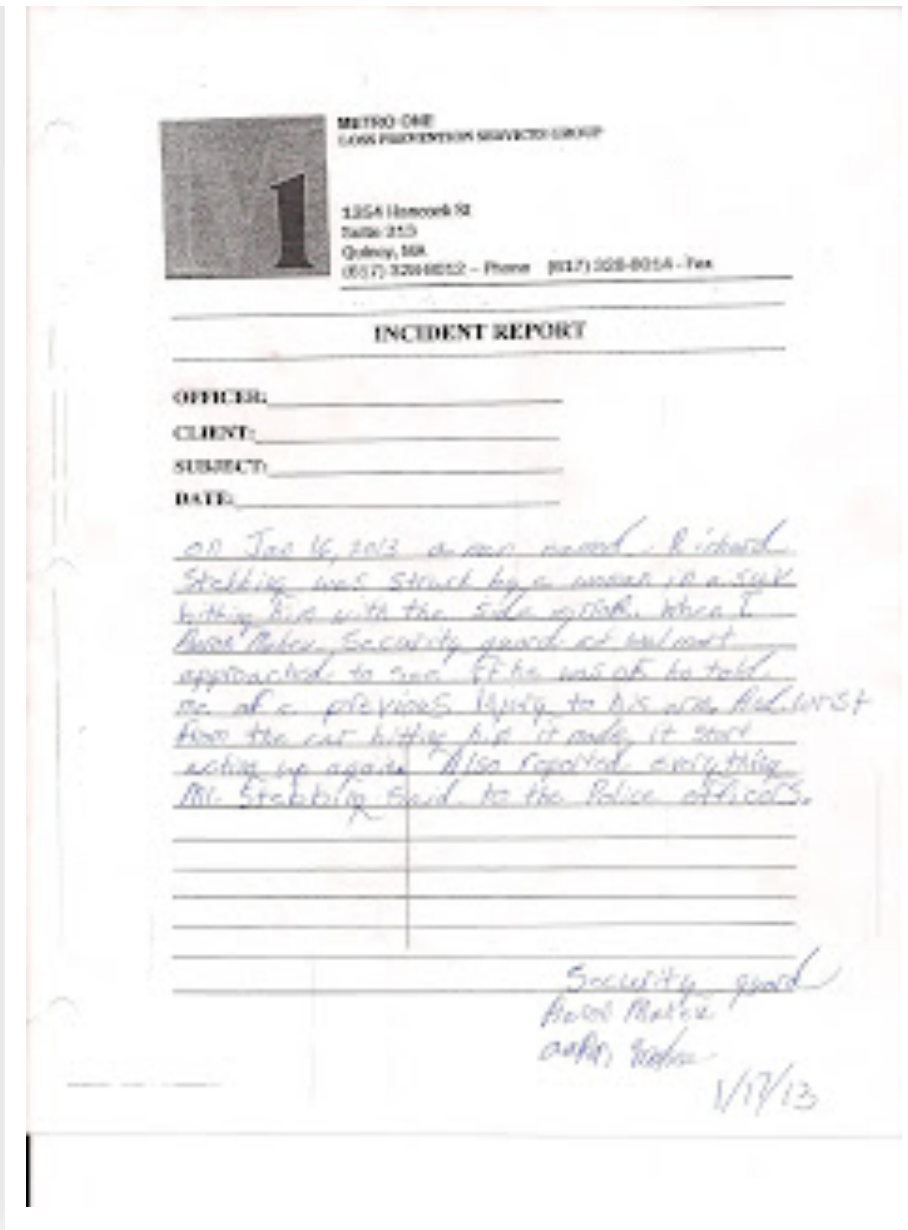 M1
METRO ONE
LOSS PREVENTION SERVICES GROUP
1254 Hancock St
Suite 213
Quincy, MA
(617) 328-8012 – Phone (617) 328-8014 - Fax
INCIDENT REPORT
OFFICER:
CLIENT:
SUBJECT:
DATE:
on Jan 16, 2013 a man named Richard
was struck by a woman in a SUV
hitting him with the side mirror. When I
Security guard at walmart
approached to see if he was ok he told
me of a previous injury to his arm And wrist
from the car hitting him it made it start
acting up again. Also reported everything
Mr. Stebbing Said to the Police officers.
Security guard
1/17/13